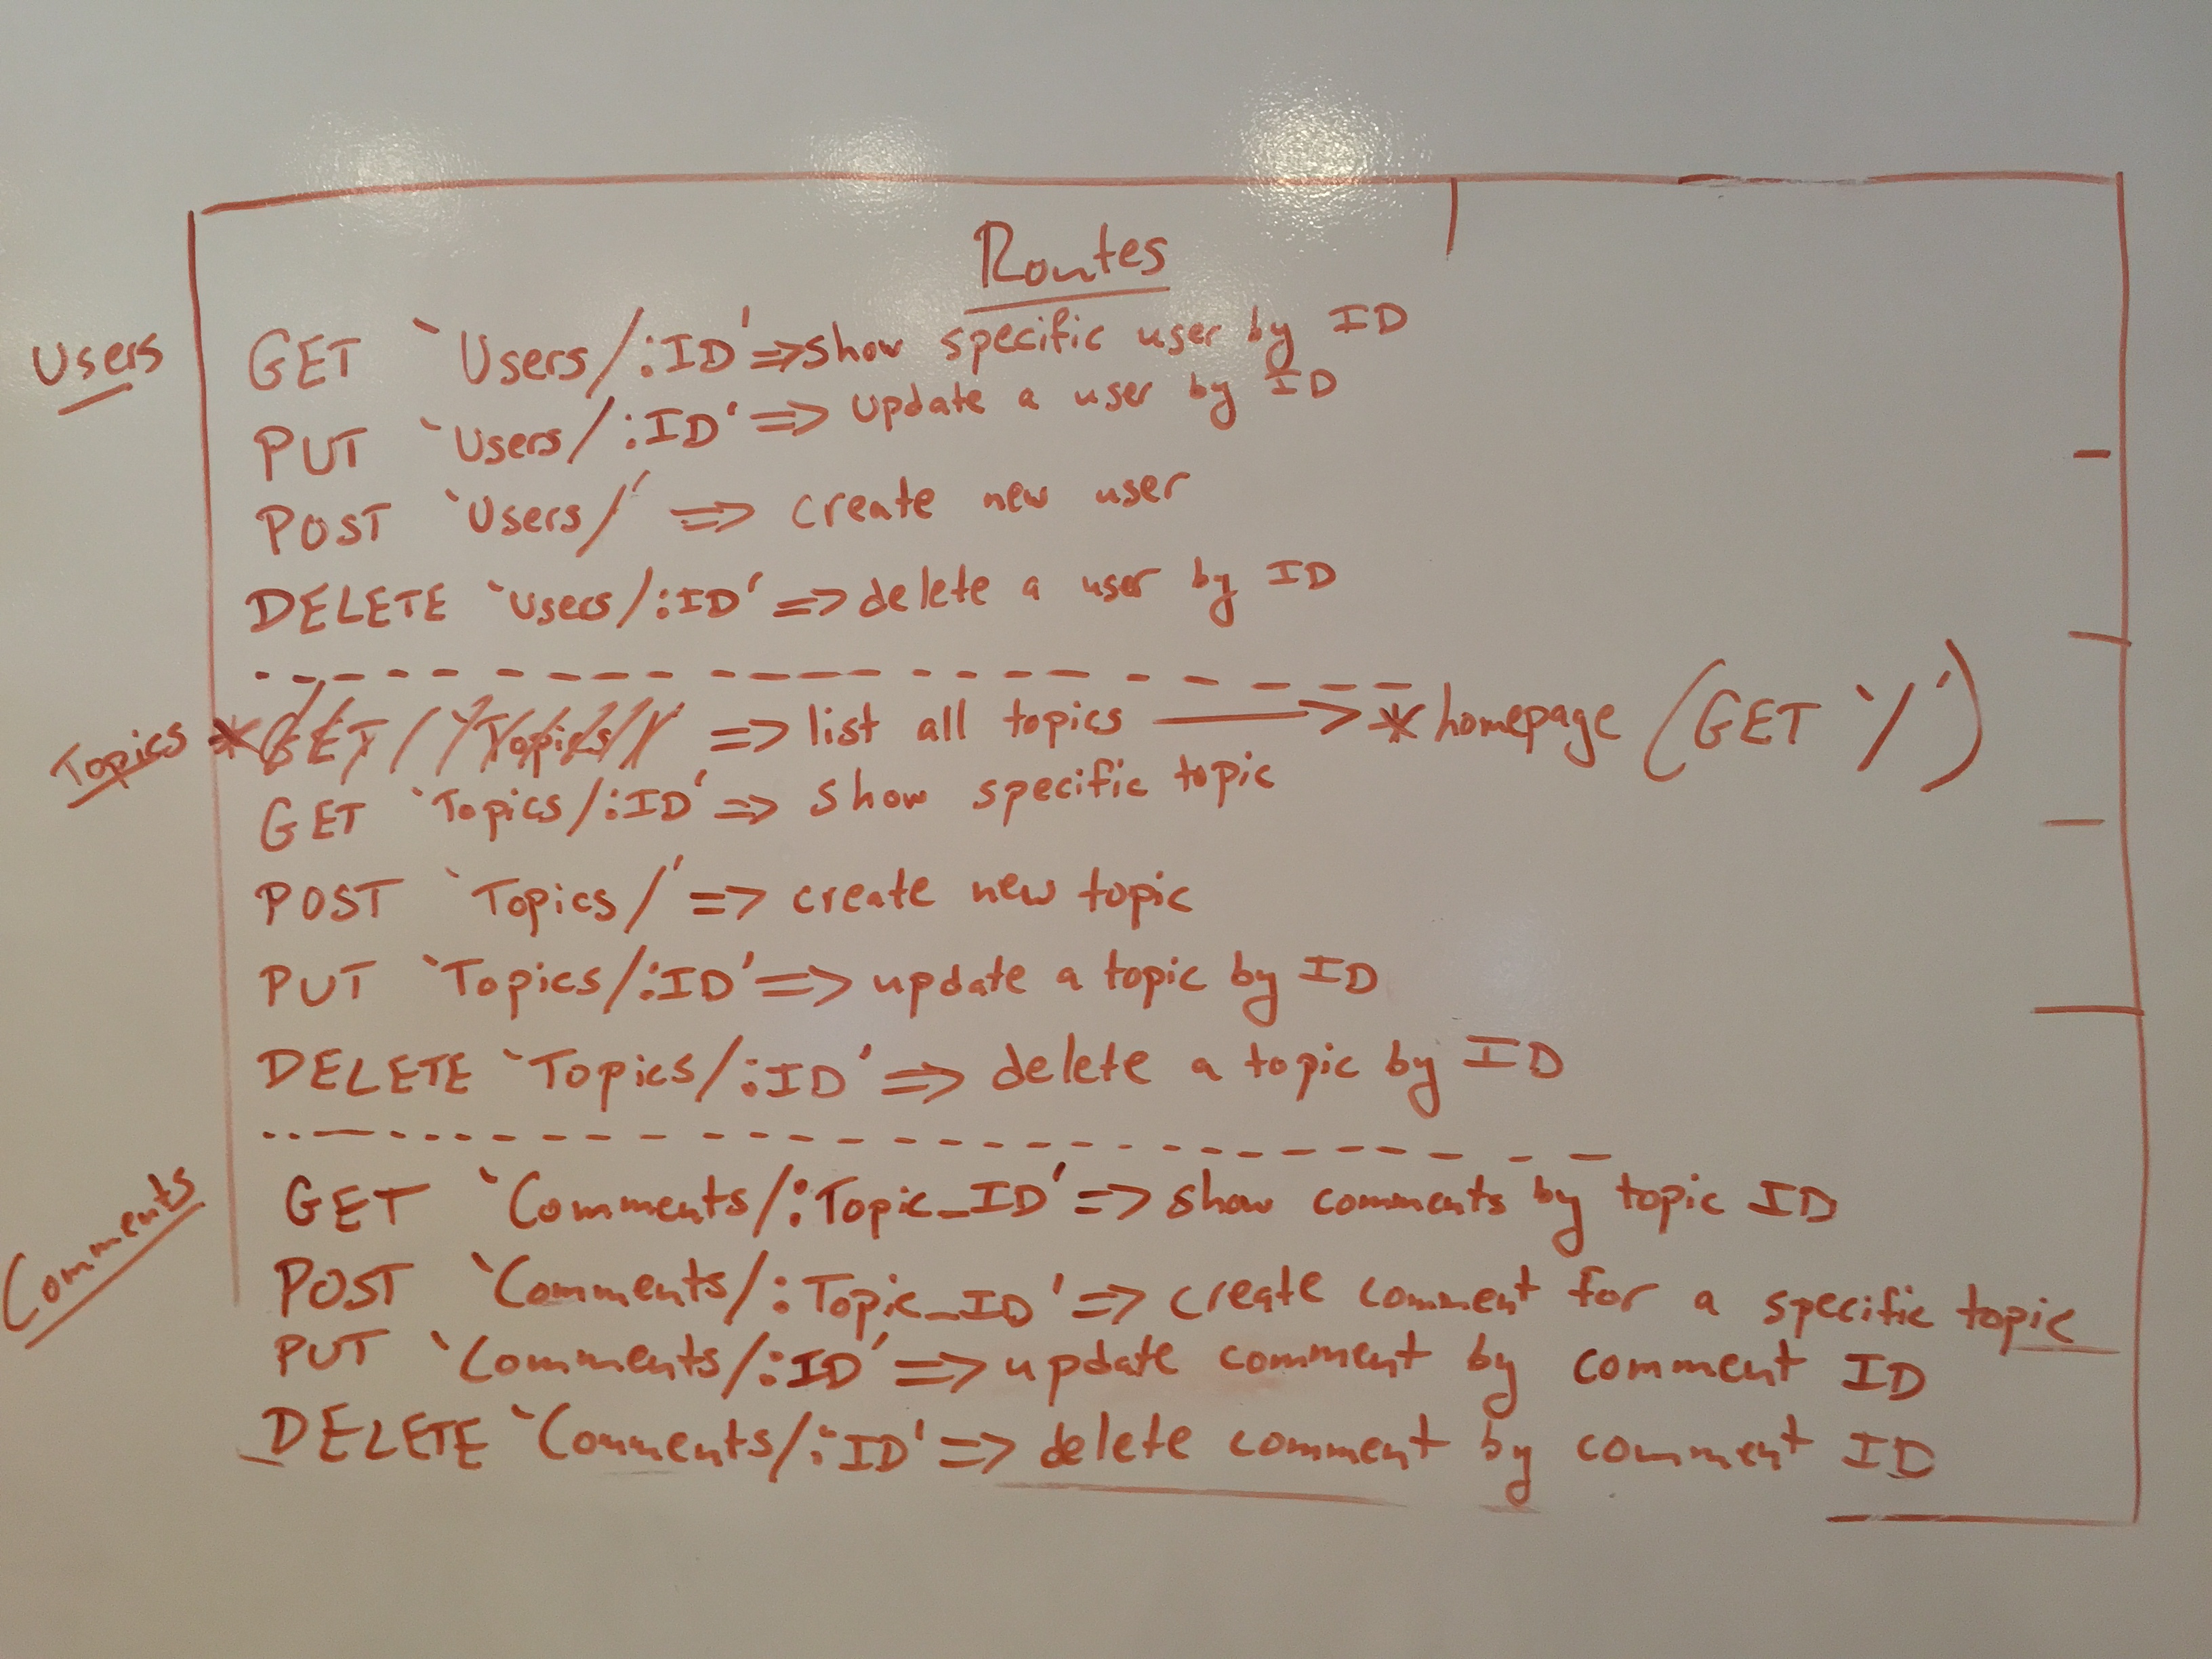 Routes
Users
GET `Users/:ID' => show specific user by ID
PUT `Users/:ID' => update a user by ID
POST `Users/' => create new user
DELETE `users/:ID' => delete a user by ID
Topics * GET `Topics/' => list all topics → * homepage (GET `/')
GET `Topics/:ID' => show specific topic
POST `Topics/' => create new topic
PUT `Topics/:ID' => update a topic by ID
DELETE `Topics/:ID' => delete a topic by ID
Comments
GET `Comments/:Topic_ID' => show comments by topic ID
POST `Comments/:Topic_ID' => create comment for a specific topic
PUT `Comments/:ID' => update comment by comment ID
DELETE `Comments/:ID' => delete comment by comment ID